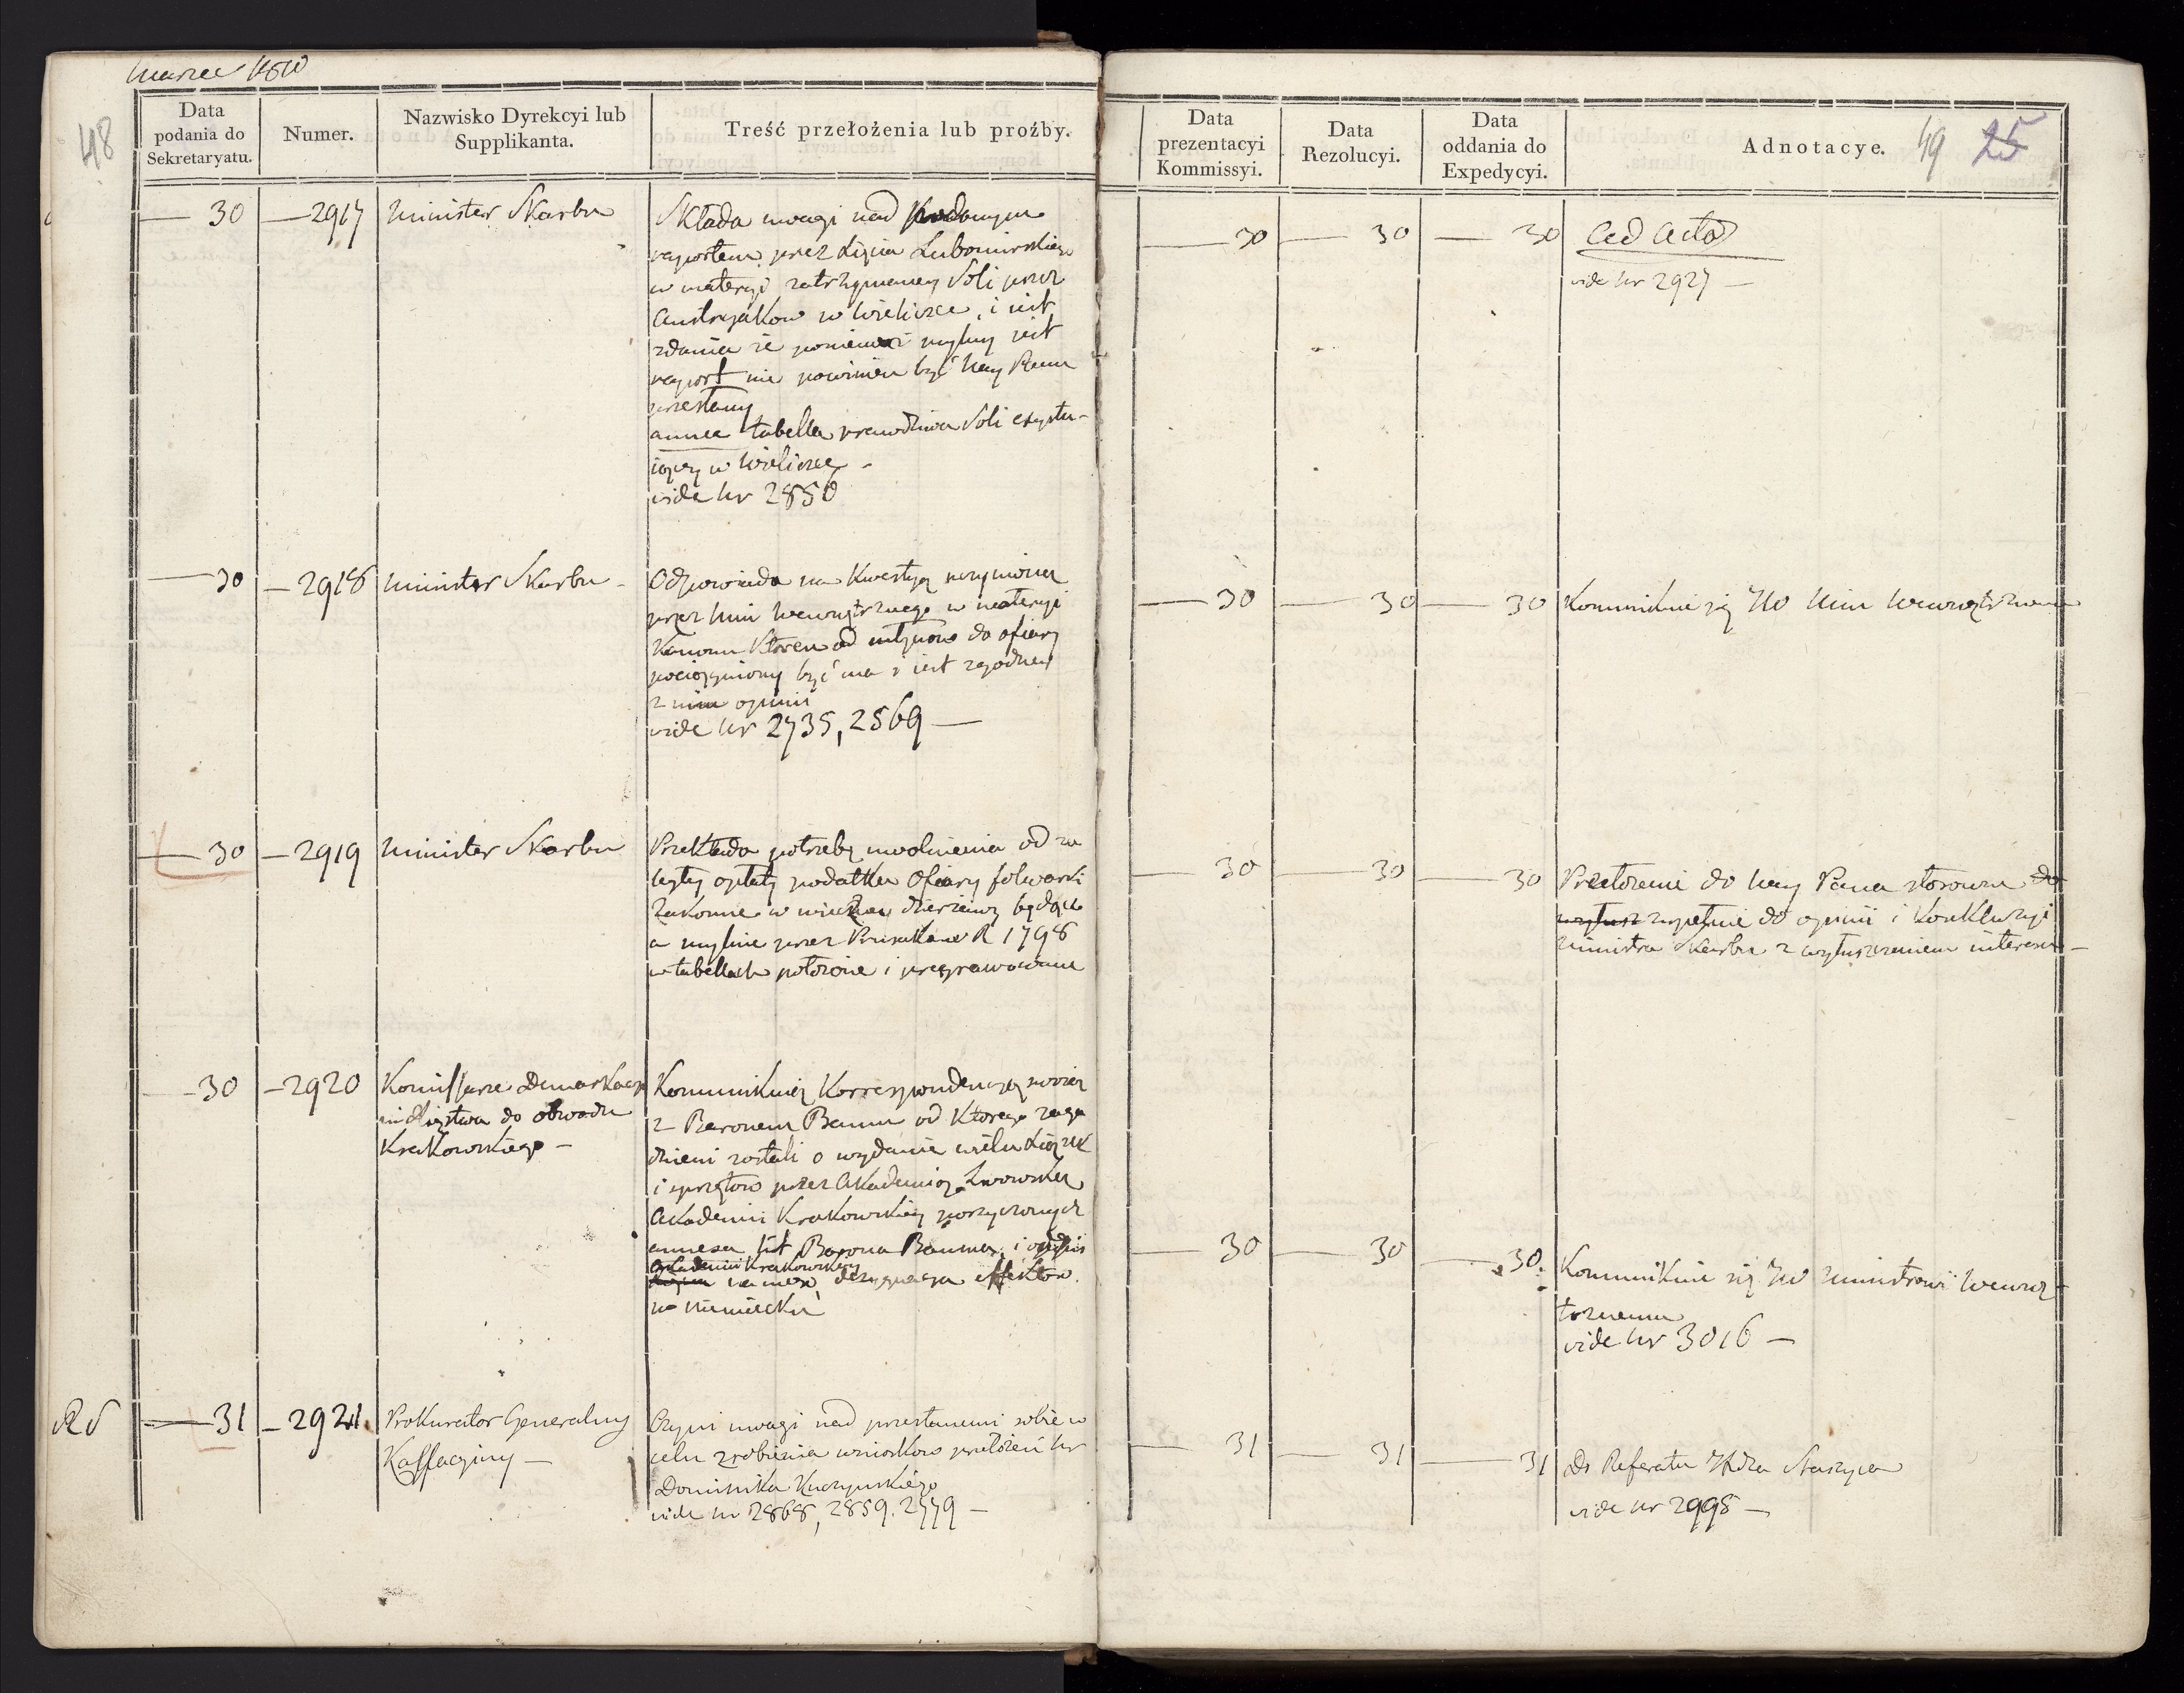 Marzec 1810
48
Data podania do Sekretaryatu.
Numer.
Nazwisko Dyrekcyi lub Supplikanta.
Treść przełożenia lub proźby.
Data prezentacyi Kommissyi.
Data Rezolucyi.
Data oddania do Expedycyi.
Adnotacye.
49 25
— 30 — 2917 Minister Skarbu
Składa uwagi nad podanym
raportem przez Xięcia Lubomirskiego
w materyi zatrzymaney Soli przez
Austryaków w Wieliczce, i jest
zdania że ponieważ mylny jest
raport nie powinien być Nay Panu
przesłany
annexa tabella prawdziwa Soli exystu-
iącey w Wieliczce -
vide Nr 2850
— 30 — 30 — 30 Ad acta
vide Nr 2927 —
— 30 — 2918 Minister Skarbu -
Odpowiada na Kwestyą uczynioną
przez Min Wewnętrznego w materyi
Kanonu Któren od młynów do ofiary
pociągniony być ma i jest zgodney
z nim opinii
vide Nr 2735, 2569 —
— 30 — 30 — 30 Kommunikuie się JW Min Wewnętrznemu
— 30 — 2919 Minister Skarbu
Przekłada potrzebę uwolnienia od za
ległey opłaty podatku Ofiary folwarki
Zakonne w dzierżawy będące
a mylnie przez Prusaków R 1798
w tabellach położone i
— 30 — 30 — 30 Przełożenie do Nay Pana stosowne do
zupełnie do opinii i Konkluzyi
Ministra Skarbu z wyłuszczeniem interesu —
— 30 — 2920 Komissarze Demarkacyi
ni Xięstwa do obwodu
Krakowskiego —
Kommunikuią Korrespondencyą swoią
z Baronem Baum od Którego zaga
dnieni zostali o wydanie wielu Xiążek
i sprzętów przez Akademią Lwowską
Akademii Krakowskiey pożyczonych
annexa list Barona Bauma, i odpis
Akademii Krakowskiey
na niego, dezygnacya effektów
po niemiecku
— 30 — 30 — 30 Kommunikuie się JW Ministrowi Wewnę-
trznemu
vide Nr 3016 —
— 31 — 2921 Prokurator Generalny
Kassacyiny —
Czyni uwagi nad przesłanemi sobie w
celu zrobienia wniosków przełożeń Nr
Dominika Kuczyńskiego
vide Nr 2868, 2859. 2779 —
— 31 — 31 — 31 Do Referatu JXdza Staszyca
vide Nr 2998 —